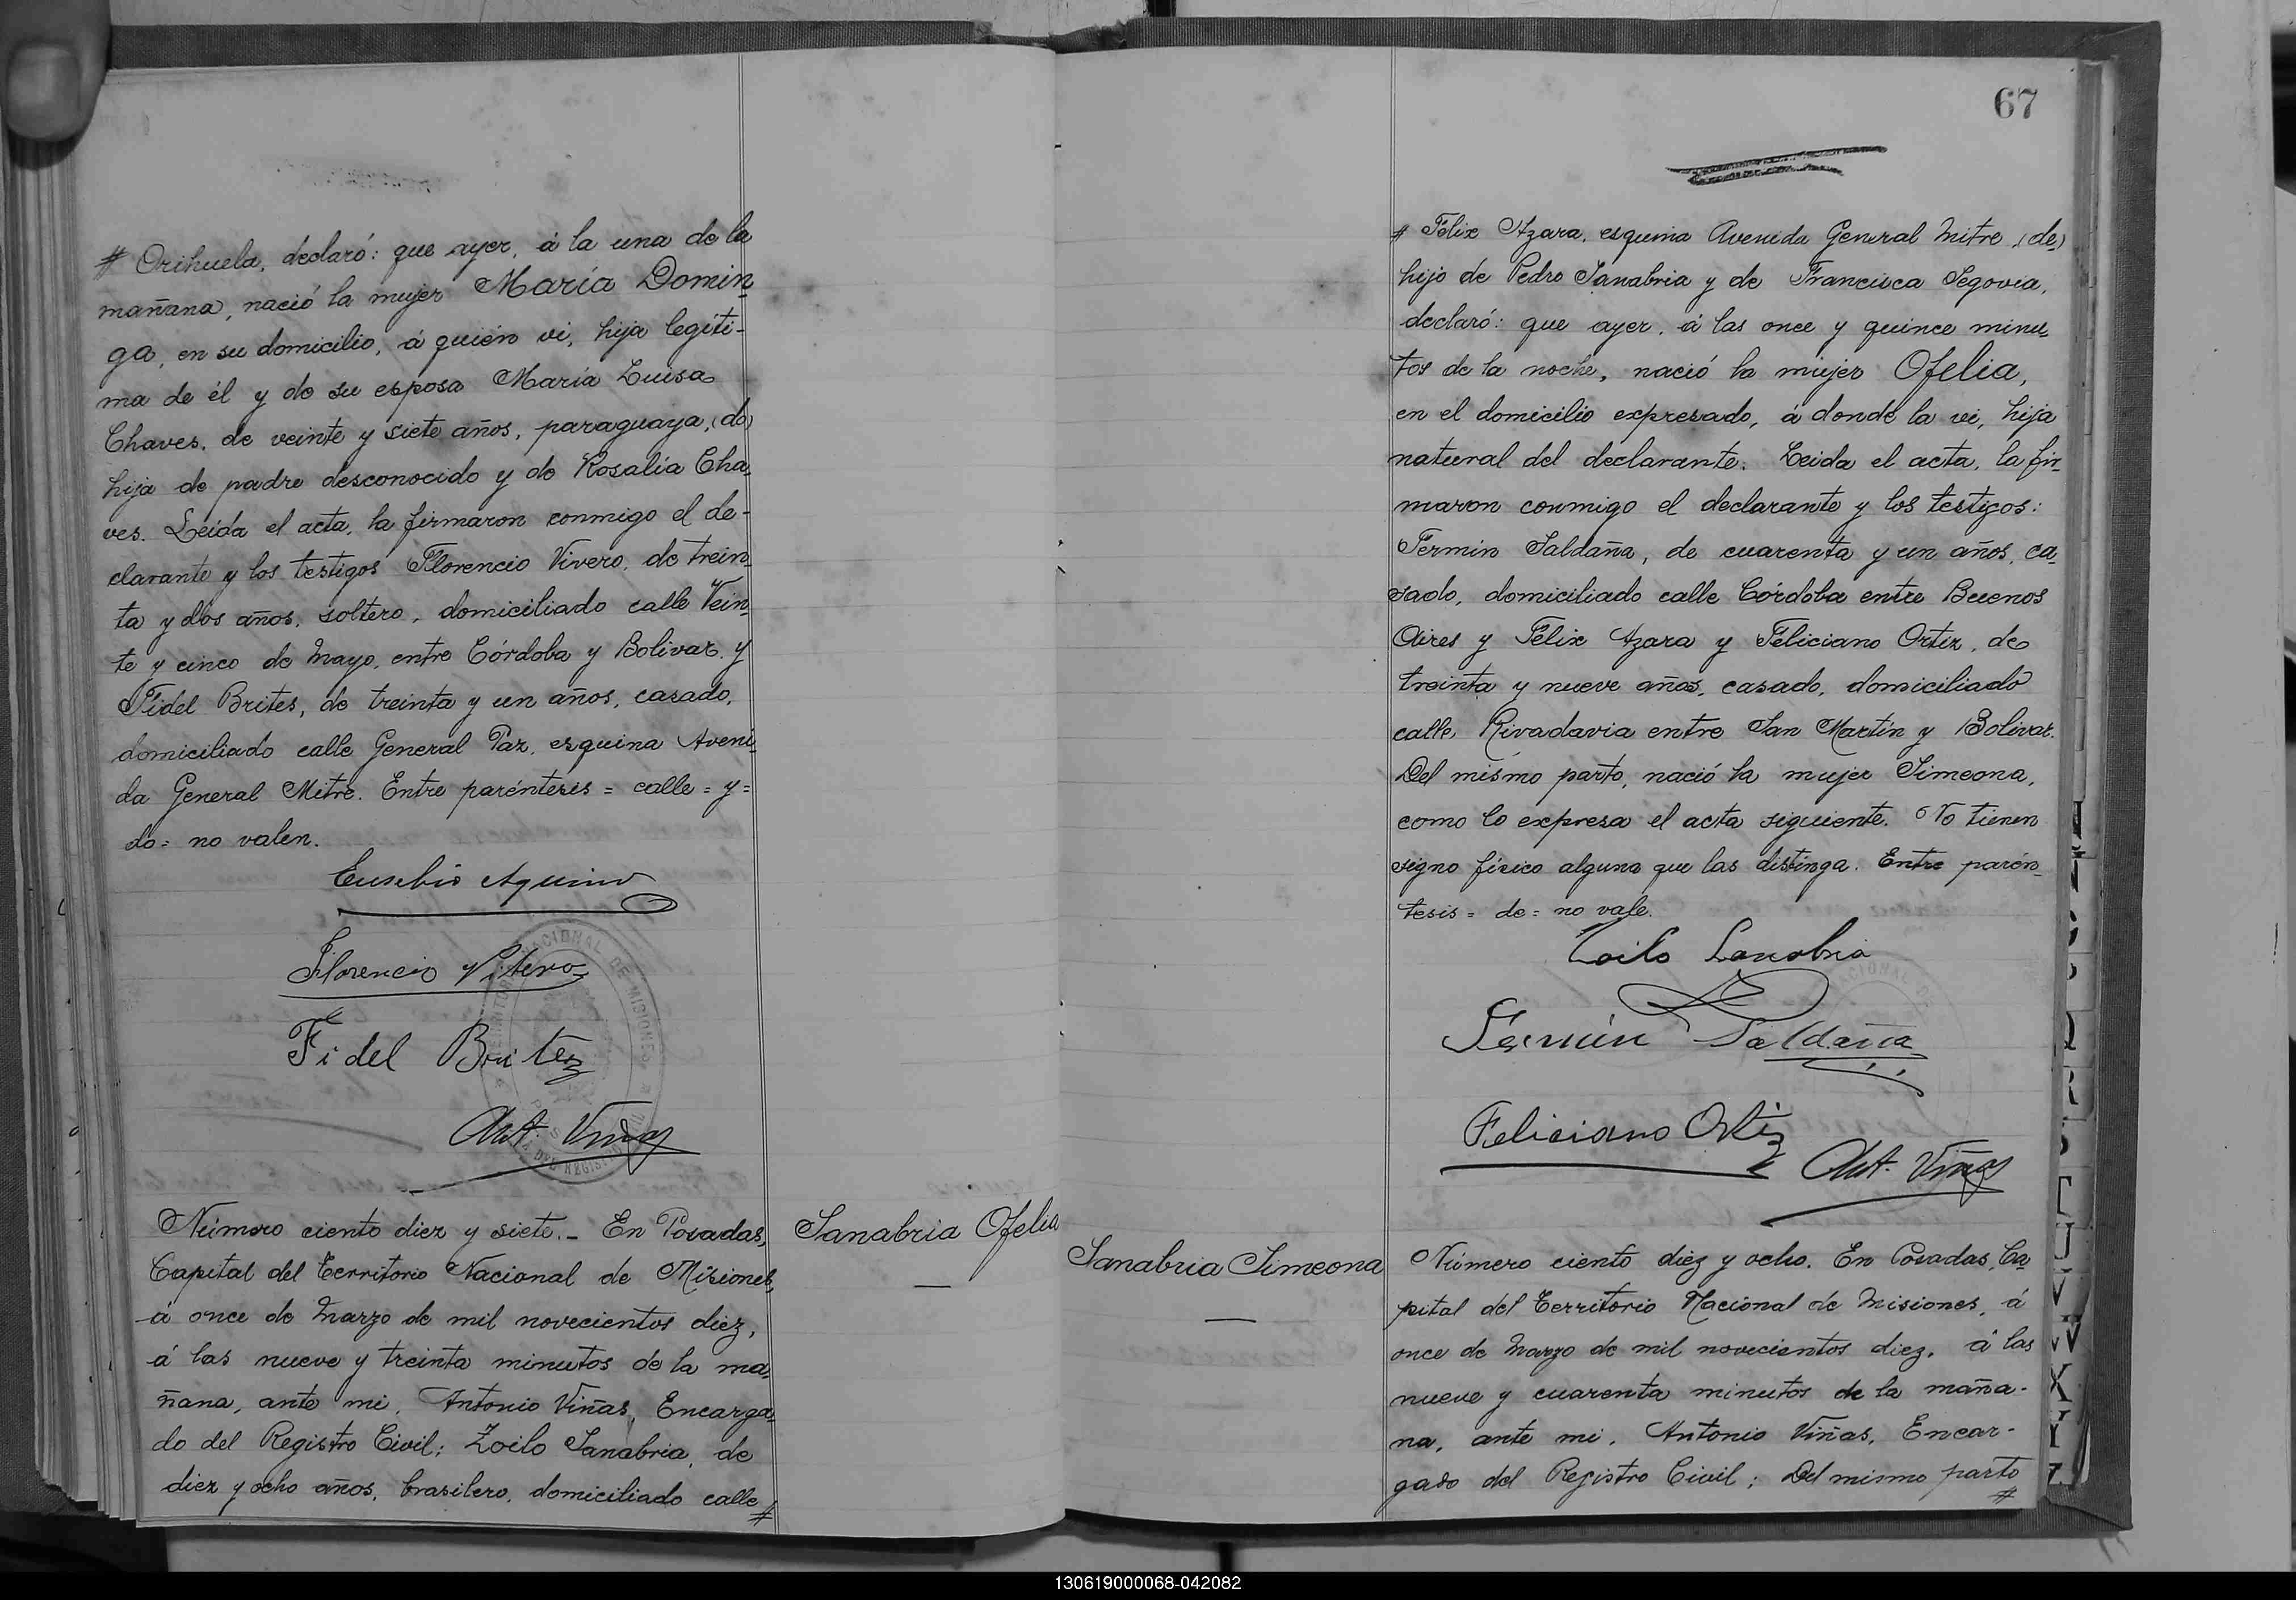 # Orihuela, declaró: que ayer, á la una de la
mañana, nació la mujer María Domin-
ga, en su domicilio, á quién vi, hija legíti-
ma de él y de su esposa María Luisa
Chaves, de veinte y siete años, paraguaya, (do)
hija de padre desconocido y de Rosalía Cha-
ves. Leída el acta, la firmaron conmigo el de-
clarante y los testigos Florencio Vivero, de trein-
ta y dos años, soltero, domiciliado calle Vein-
te y cinco de Mayo, entre Córdoba y Bolivar y
Fidel Brites, de treinta y un años, casado,
domiciliado calle General Paz, esquina Aveni-
da General Mitre. Entre paréntesis = calle = y =
do = no valen.
Eusebio Aquino
Florencio Vivero
Fidel Britez
Ant. Viñas
Número ciento diez y siete. - En Posadas,
Capital del Territorio Nacional de Misiones,
á once de Marzo de mil novecientos diez,
á las nueve y treinta minutos de la ma-
ñana, ante mi, Antonio Viñas, Encarga-
do del Registro Civil; Zoilo Sanabria, de
diez y ocho años, brasilero, domiciliado calle #
Sanabria Ofelia
67
# Félix Azara, esquina Avenida General Mitre, (de)
hijo de Pedro Sanabria y de Francisca Segovia,
declaró: que ayer, á las once y quince minu-
tos de la noche, nació la mujer Ofelia,
en el domicilio expresado, á donde la vi, hija
natural del declarante. Leida el acta, la fir-
maron conmigo el declarante y los testigos:
Fermín Saldaña, de cuarenta y un años, ca-
sado, domiciliado calle Córdoba entre Buenos
Aires y Félix Azara y Feliciano Ortiz, de
treinta y nueve años, casado, domiciliado
calle Rivadavia entre San Martín y Bolivar.
Del mismo parto, nació la mujer Simeona,
como lo expresa el acta siguiente. No tienen
signo físico alguno que las distinga. Entre parén-
tesis = de = no vale.
Zoilo Sanabria
Fermín Saldaña
Feliciano Ortiz
Ant. Viñas
Sanabria Simeona
Número ciento diez y ocho. En Posadas, Ca-
pital del Territorio Nacional de Misiones, á
once de Marzo de mil novecientos diez, á las
nueve y cuarenta minutos de la maña-
na, ante mi, Antonio Viñas, Encar-
gado del Registro Civil; Del mismo parto
#
130619000068-042082